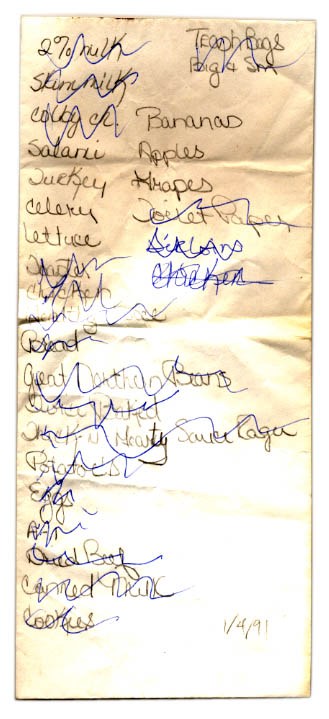 2% milk
Skim milk
colby ch.
Salami
Turkey
celery
lettuce
Bread
Great Northern Beans
Thick n Hearty Sauce Ragu
Potatoes
Eggs
Ham
Dried Beef
Canned Milk
Cookies
Trash Bags
Big & Sm
Bananas
Apples
Grapes
Toilet Paper
Chicken
1/4/91